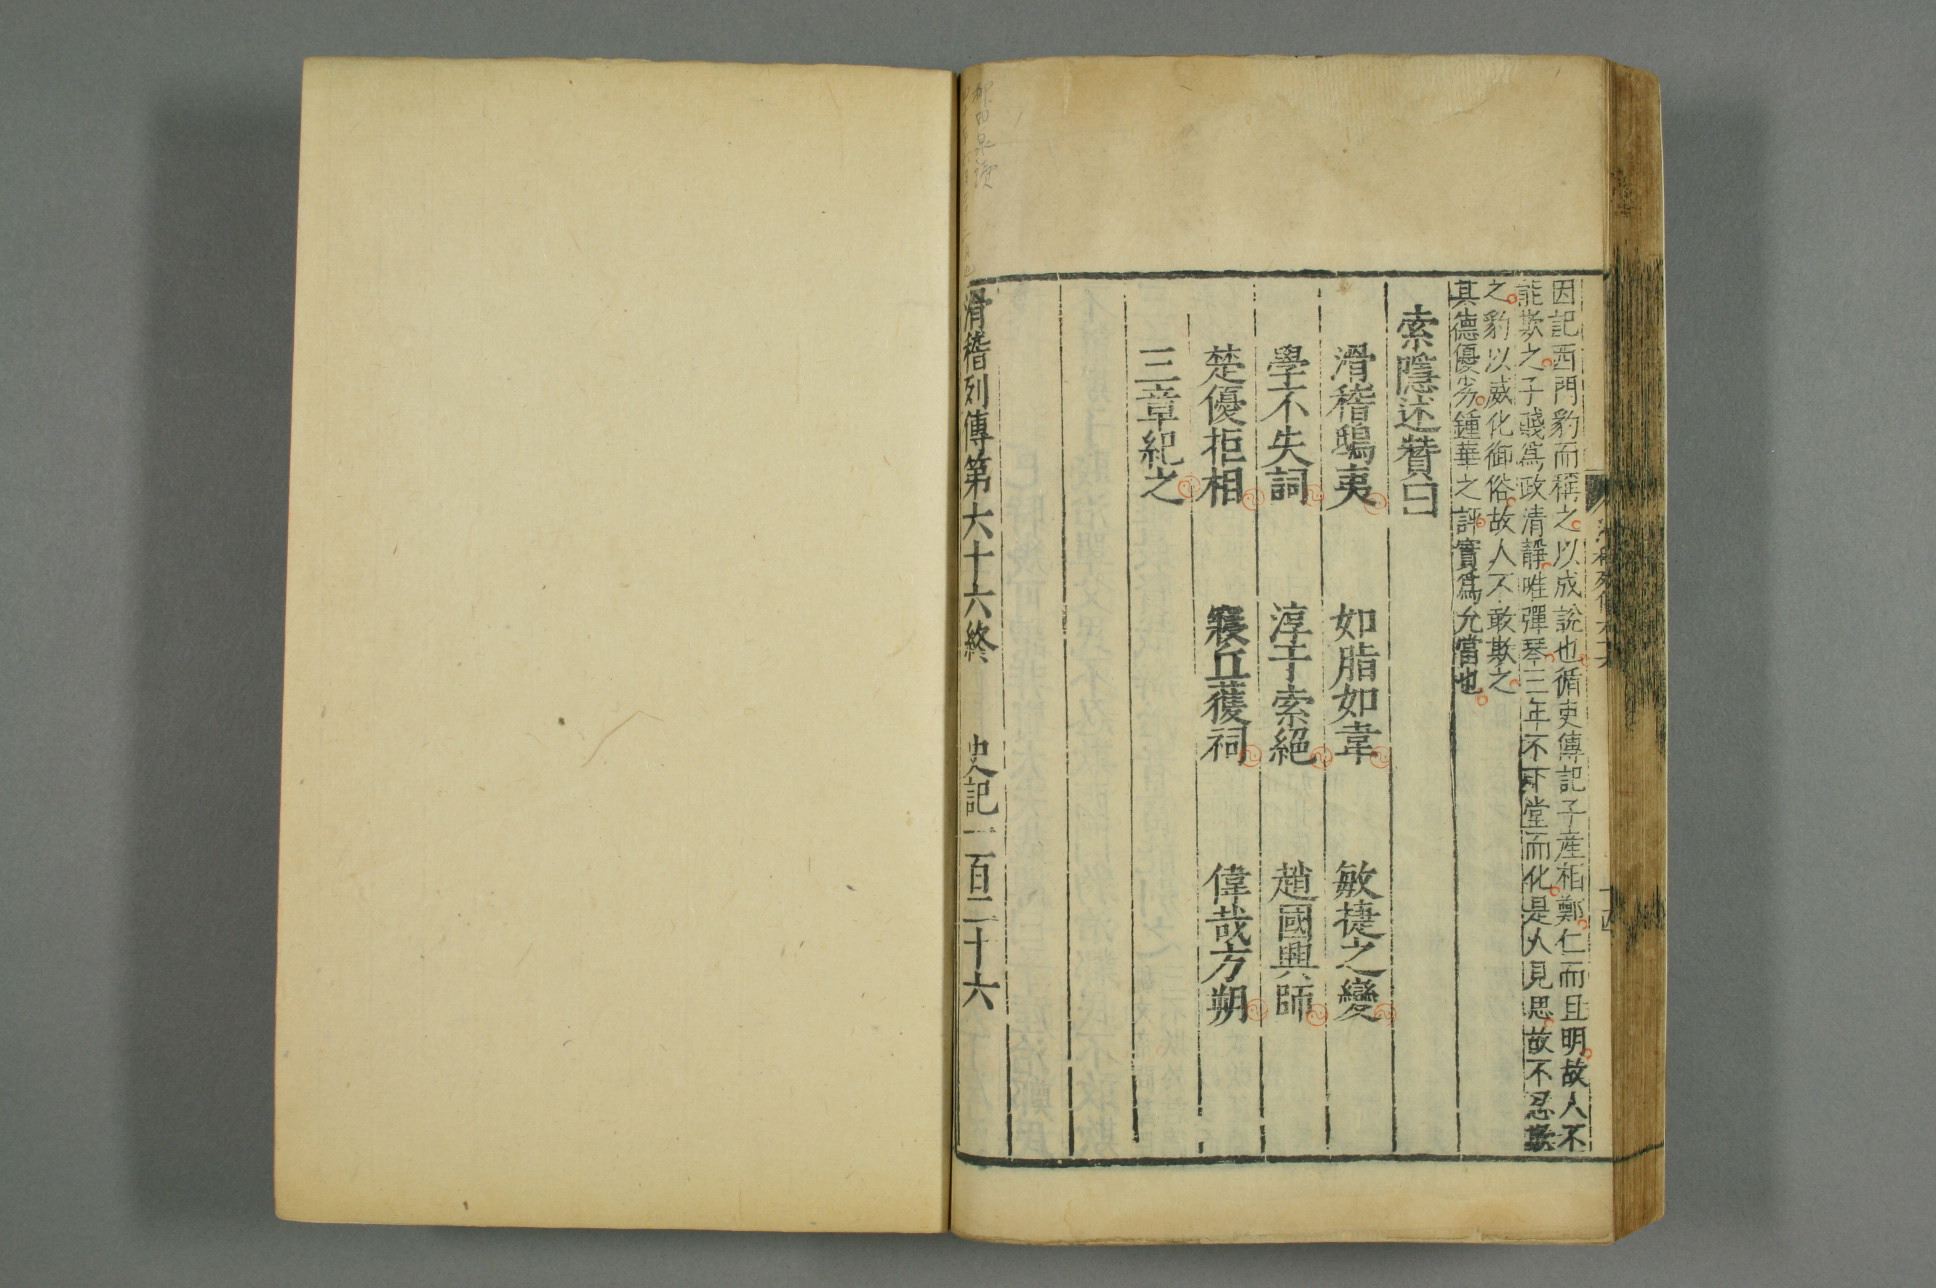 因記西門豹而稱之以成說也循吏傳記子産相鄭仁而且明故人不
能欺之子賤爲政清靜唯彈琴三年不下堂而化是人見思故不忍欺
之豹以威化御俗故人不敢欺之
其德優劣鍾華之評實爲允當也
索隱述贊曰
滑稽鴟夷 如脂如韋 敏捷之變
學不失詞 淳于索絕 趙國興師
楚優拒相 寢丘獲祠 偉哉方朔
三章紀之
滑稽列傳第六十六終 史記一百二十六